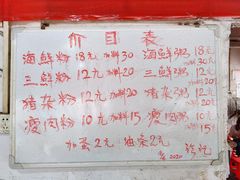 价目表
海鲜粉 18元 加料30 海鲜粥 18元 加料30
三鲜粉 12元 加料20 三鲜粥 12元 加料20
猪杂粉 12元 加料20 猪杂粥 12元 加料20
瘦肉粉 10元 加料15 瘦肉粥 10元 加料15
加蛋2元 油条2元
2020